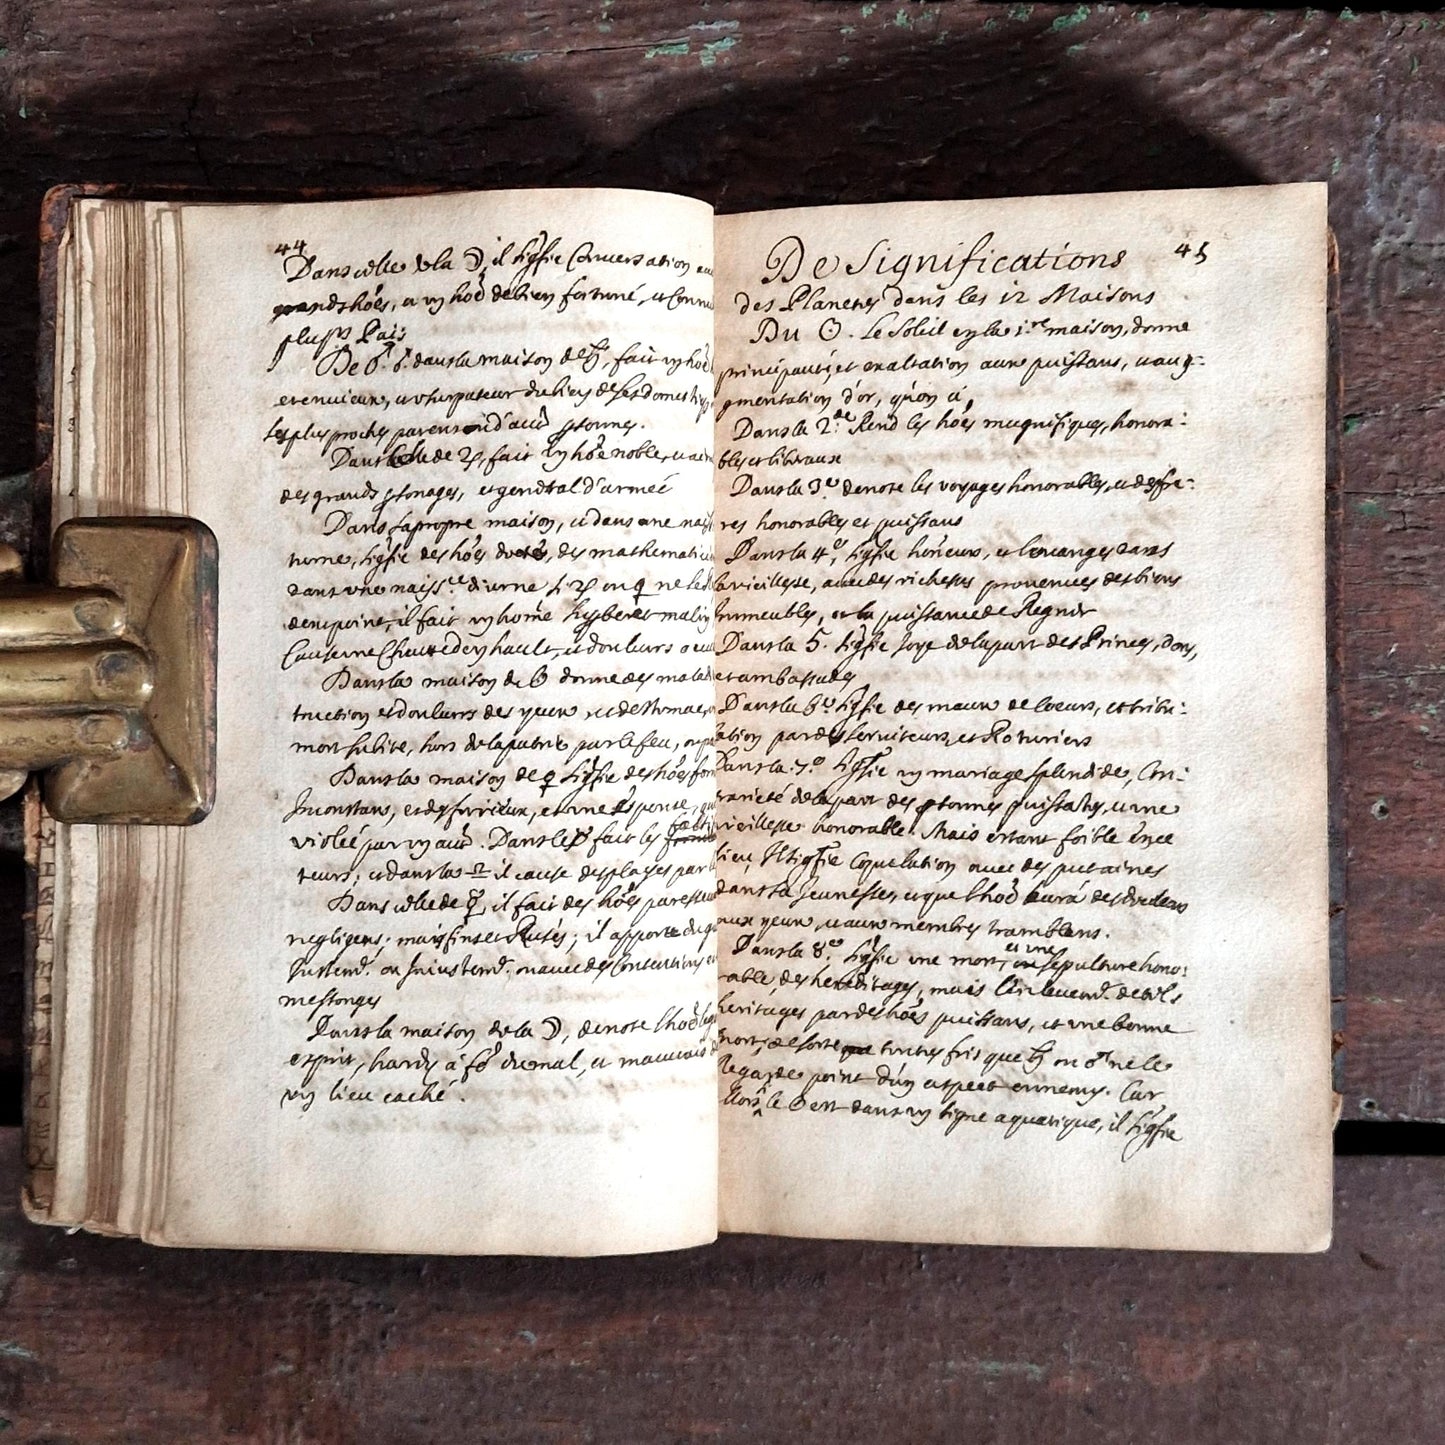 44
Dans celle de la ☽, il sigfie Conversation
grands hoẽs, et vn hoẽ de bien fortuné, et Connu
plusrs Pais
De ♂. dans la maison de ♄, fait vn hoẽ
et envieux, et vsurpateur du bien de ses domestiq
les plus proches parens d'aucũ psonnes.
Dans celle de ♃, fait vn hoẽ noble,
des grands psonages, et genéral d'armeé
Dans sa propre maison, et dans vne naiss
turne, sigfie des hoẽs, des mathematici
dans vne naissce diurne si ♃ ou ♀ ne le
dent point, il fait vn homẽ et malin
Cheute d'en hault, et douleurs
Dans la maison du ☉ donne des malad
truction et douleurs des yeux, et destomac,
mort subite, hors de la patrie par le feu, ou
Dans la maison de ♀ sigfie des hoẽs forn
Inconstans, et des furieux, et vne Espouse,
violeé par vn aũ. Dans le fait les
teurs; et dans la ♎ il cause des playes par
Dans celle de ☿, il fait des hoẽs paresseux
negligens; mais fins et Rusés; il apporte du
Justemt. ou Iniustemt. ou avec des Contentions
mesonges
Dans la maison de la ☽, denote l'hoẽ
esprit, hardy à fẽ du mal, et mauvais
vn lieu caché.
45
De Significations
des Planetes dans les 12 Maisons
Du ☉. Le Soleil en la 1.re maison, donne
principauté, et exaltation aux puissans, et aug-
gmentation d'or, qu'on a,
Dans la 2.de Rend les hoẽs magnifiques, honora-
bles et liberaux
Dans la 3.e denote les voyages honorables, et des fre-
res honorables et puissans
Dans la 4.e, sigfie honeurs, et louanges dans
la vieillesse, avec des richesses provenues des biens
Immeubles, et la puissance de Regner
Dans la 5. sigfie Joye de la part des Princes, Dons,
et ambassades
Dans la 6.e sigfie des maux de Coeurs, et tribu-
lation par des serviteurs, et Roturiers
Dans la 7.e sigfie vn mariage splendide, Con-
trarieté de la part des psonnes puissantes, et vne
vieillesse honorable. Mais estant foible En ce
lieu, Il sigfie Copulation avec des putaines
dans sa Jeunesse, et que l'hoẽ aura des douleurs
aux yeux, et aux membres tramblans.
Dans la 8.e sigfie vne mort, et vne sepulture hono-
rable, des heréditages, mais d'iceux
heritages par des hoẽs puissans, et vne bonne
mort; de sorte toutes fois que ♄ ou ♂ ne le
regarde point d'un aspect ennemy. Car
alors le ☉ est dans vn signe aquatique, il sigfie